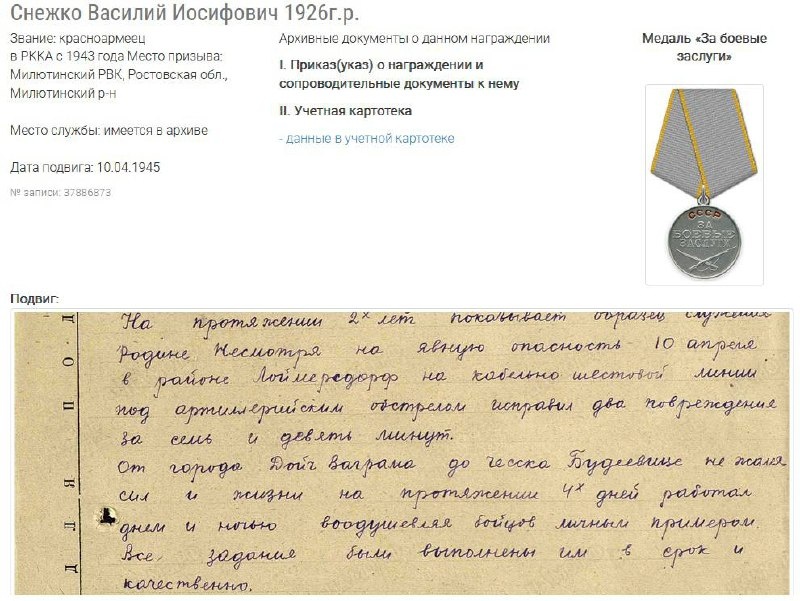 Снежко Василий Иосифович 1926г.р.
Звание: красноармеец
в РККА с 1943 года Место призыва:
Милютинский РВК, Ростовская обл.,
Милютинский р-н
Место службы: имеется в архиве
Дата подвига: 10.04.1945
№ записи: 37886873
Архивные документы о данном награждении
I. Приказ(указ) о награждении и
сопроводительные документы к нему
II. Учетная картотека
- данные в учетной картотеке
Медаль «За боевые
заслуги»
СССР
ЗА
БОЕВЫЕ
ЗАСЛУГИ
Подвиг:
На протяжении 2х лет показывает образец служения
Родине Несмотря на явную опасность 10 апреля
в районе Лоймерсдорф на кабельно шестовой линии
под артиллерийским обстрелом исправил два повреждения
за семь и девять минут.
От города Дойч Ваграма до Ческа Будеевице не жалея
сил и жизни на протяжении 4х дней работал
днем и ночью воодушевляя бойцов личным примером.
Все задания были выполнены им в срок и
качественно.